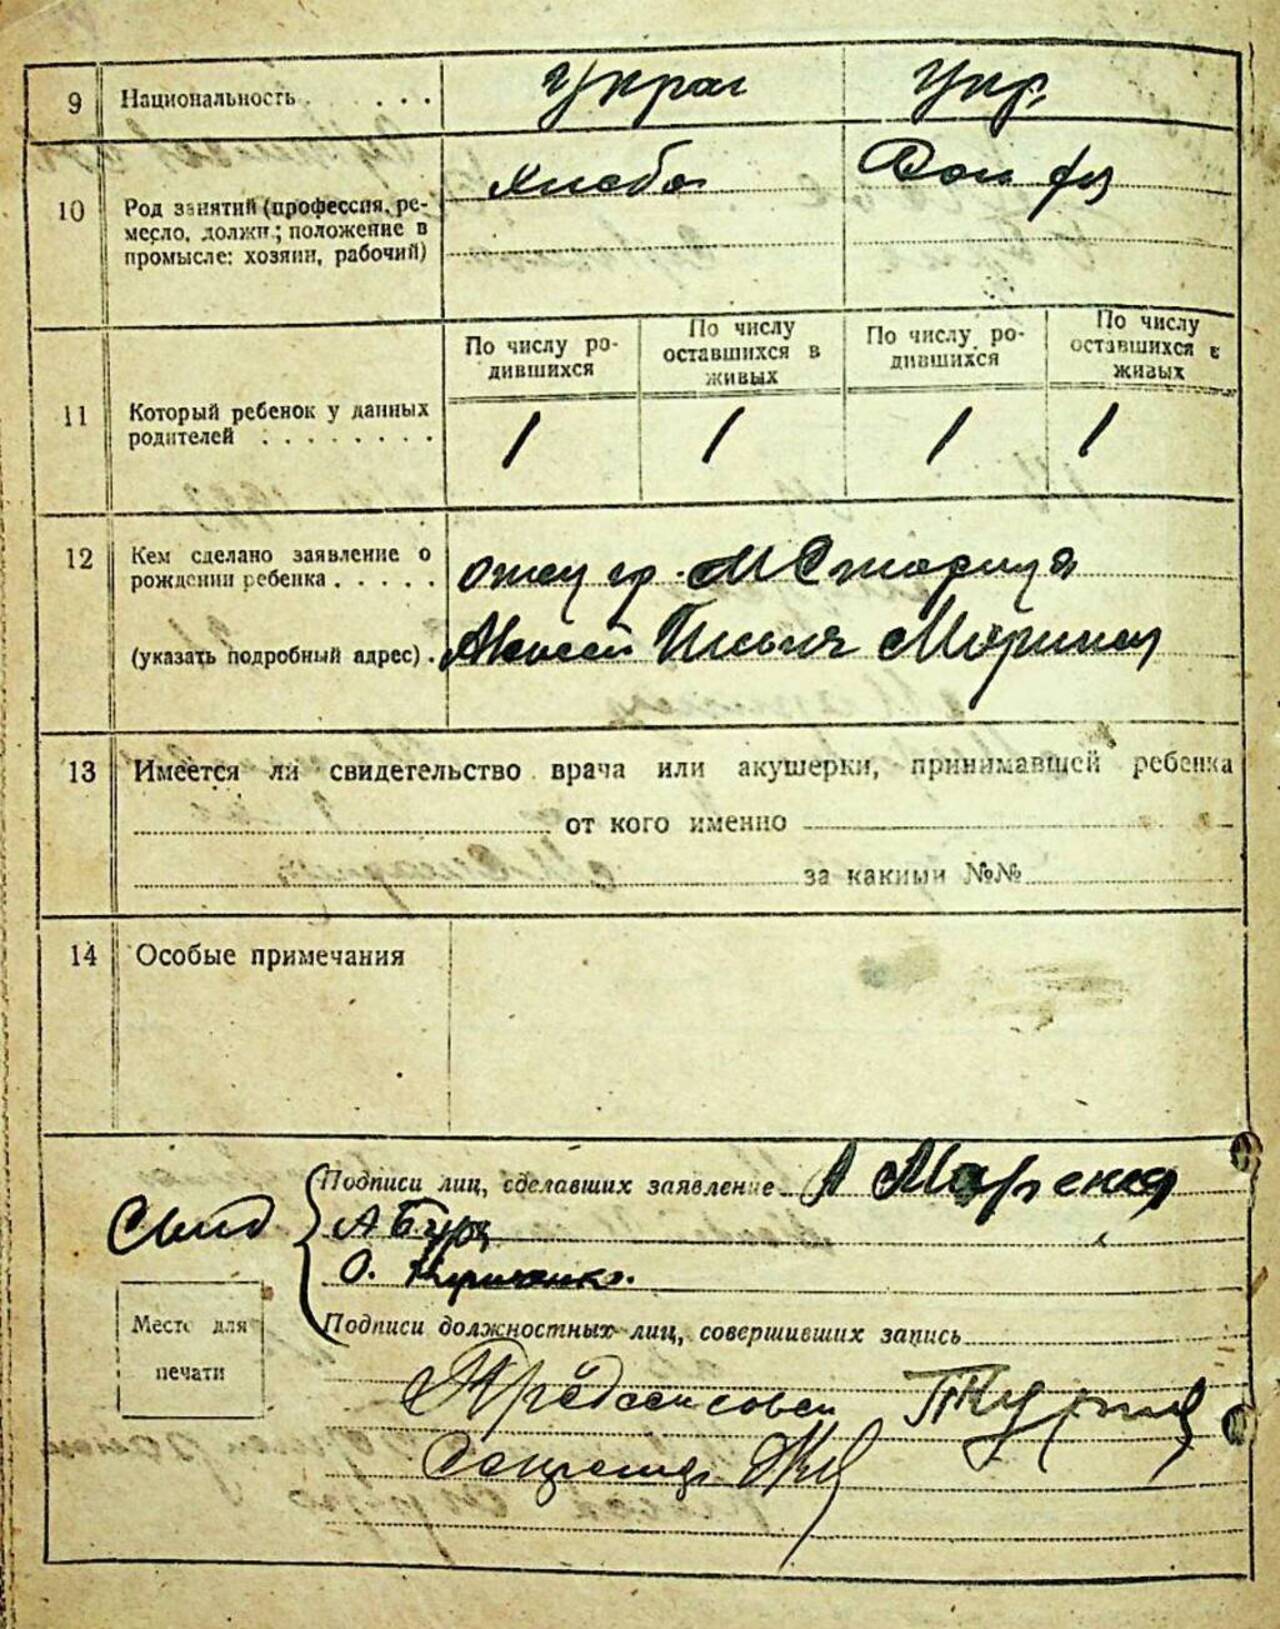 9 Национальность . . . . . Украї Укр.
10 Род занятий (профессия, ре- Дом
месло, должн.; положение в
промысле: хозяин, рабочий)
По числу ро- По числу По числу ро- По числу
дившихся оставшихся в дившихся оставшихся в
живых живых
11 Который ребенок у данных 1 1 1 1
родителей . . . . . . . .
12 Кем сделано заявление о отец гр. М Старица
рождении ребенка . . . . .
(указать подробный адрес) .
13 Имеется ли свидетельство врача или акушерки, принимавшей ребенка
от кого именно
за какими №№
14 Особые примечания
Подписи лиц, сделавших заявление А
Свид А Бур
О. Кириченко.
Место для Подписи должностных лиц, совершивших запись
печати
Секретарь